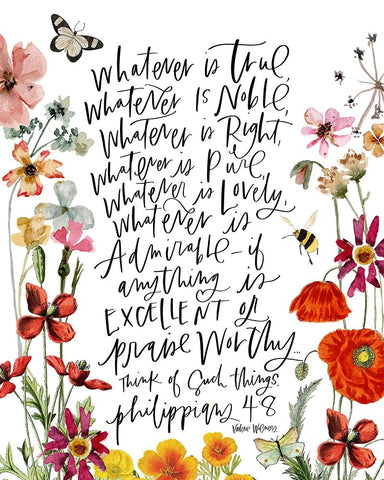 whatever is True,
whatever Is Noble,
whatever is Right,
whatever is Pure,
whatever is Lovely,
whatever is
Admirable-if
anything is
EXCELLENT or
praise Worthy...
Think of Such things.
philippians 4:8